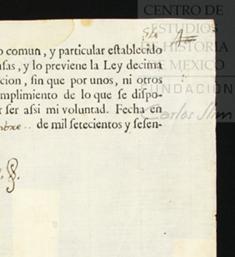 CENTRO DE
ESTUDIOS
DE HISTORIA
DE MEXICO
FUNDACIÓN
Carlos Slim
o comun, y particular establecido
sas, y lo previene la Ley decima
cion, sin que por unos, ni otros
mplimiento de lo que se dispo-
r ser assi mi voluntad. Fecha en
de mil setecientos y sesen-